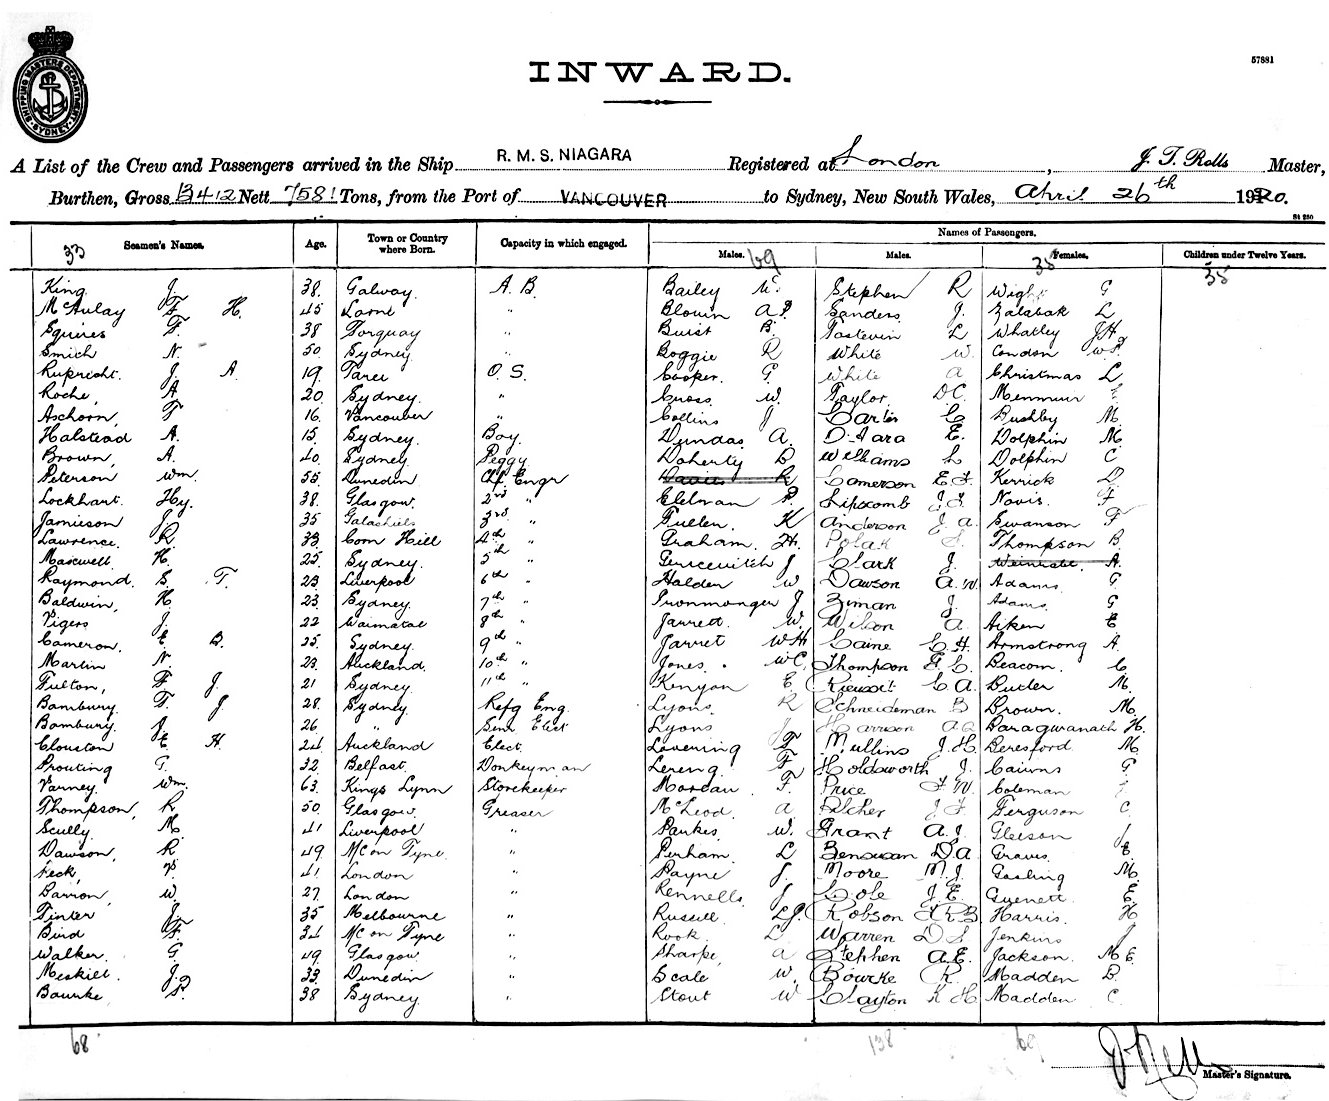 SHIPPING MASTERS DEPARTMENT SYDNEY
INWARD.
57881
A List of the Crew and Passengers arrived in the Ship R. M. S. NIAGARA Registered at London, J. T. Rolls Master,
Burthen, Gross 13412 Nett 7581 Tons, from the Port of VANCOUVER to Sydney, New South Wales, April 26th 1920.
St 250
Seamen's Names. Age. Town or Country where Born. Capacity in which engaged. Names of Passengers.
Males. Males. Females. Children under Twelve Years.
33 69 38 35
King J. 38. Galway. A. B. Bailey W. Stephen R Wight G
McAulay F H. 45 Larne " Blouin A. Sanders J. Zalabak L
Squires F. 38 Torquay " Buist B. Tastevin L Whatley J.H.
Smich N. 50 Sydney " Boggie R White W. Condon
Ruprecht. J. A. 19 Taree O. S. Cooper. G. White A Christmas L.
Roche, A 20 Sydney. " Cross W. Taylor D C. Menmuir
Aschorn, F 16 Vancouver " Collins J Carter C Bushby M.
Halstead A. 15. Sydney. Boy. Dundas A. O'Hara E. Dolphin M.
Brown, A. 40 Sydney Peggy Doherty B Williams L Dolphin C
Peterson Wm. 55 Dunedin Chf. Engr Davis R Camerson E. F. Kerrick D.
Lockhart. Hy. 38. Glasgow. 2nd " Edelman P. Lipscomb J. J. Navis. F
Jamieson J. 35 Galashiels 3rd " Fullen. K Anderson J. A. Swanson F
Lawrence. R 33. Corn Hill 4th " Graham. H. Polak S. Thompson B.
Maxwell H. 25. Sydney. 5th " J Clark J. A.
Raymond. S. T. 23 Liverpool 6th " Halden W Dawson A. W. Adams. G
Baldwin, H 23. Sydney. 7th " Ironmonger J Ziman J. Adams. G
Vigers J. 22 Waimatae 8th " Jarrett. W. Wilson A. Aiken E
Cameron. E B. 25. Sydney. 9th " Jarret W H. Caine C. H. Armstrong A.
Martin N. 23. Auckland. 10th " Jones. W C. Thompson F. C. Deacon. C.
Fulton, F J. 21 Sydney. 11th " Kenyon E. C. A. Butler M.
Bambury. T. J. 28. Sydney Refg Eng. Lyons. R Schneideman B Brown. M.
Bambury. J. 26. " Senr Elect Lyons J. Harrison A. Baragwanath H.
Clouston E H. 24 Auckland Elect. Lovering F Mullins J. H. Beresford M.
Prouting G. 32 Belfast. Donkeyman F Holdsworth J. Cairns G.
Varney. Wm. 63. Kings Lynn Storekeeper Moreau. F. Price F. W. Coleman
Thompson, R 50. Glasgow. Greaser McLeod. A Pilcher J. F. Ferguson C.
Scully. M. 41 Liverpool " Parkes W. Grant A. J. Gleeson J
Dawson, R 49 N/C on Tyne. " Perham. L D. A Graves. E.
Feck, P. 41 London " Payne J. Moore M. J. Gosling M.
Barron, W. 27. London " Rennells. J Cole J. E. E.
Tinter J. 35 Melbourne " Russell L J. Robson F. R B. Harris. H
Bird F. 34 N/C on Tyne " Rook. L Warren D S Jenkins J
Walker. G. 49 Glasgow. " Sharpe, A Stephen A. E. Jackson. M E.
Meskill. J. 33. Dunedin " Scale W. Bourke R. Madden B.
Bourke P. 38 Sydney " Stout W Clayton K H. Madden C.
68 138 69
Master's Signature.